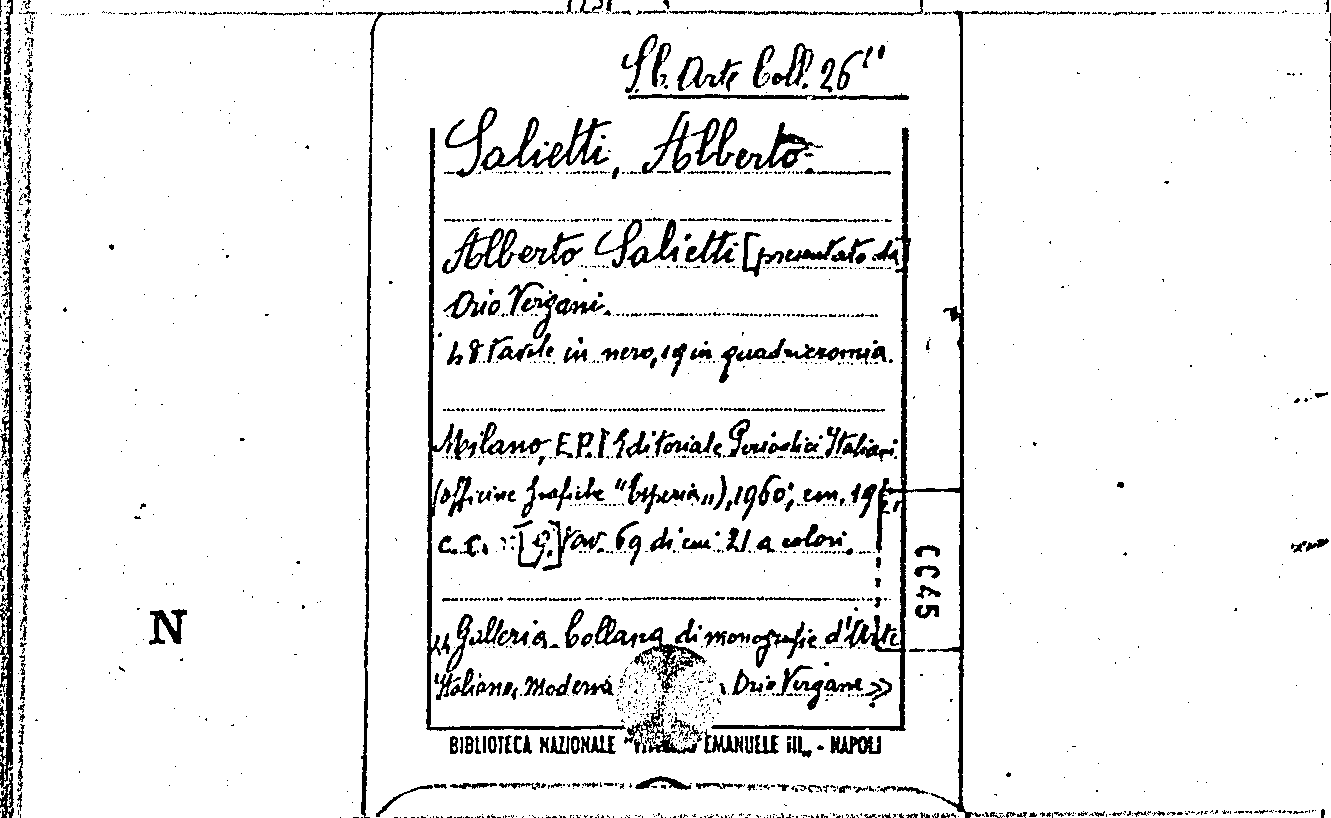 S.b. Arte Coll. 26
Salietti, Alberto.
Alberto Salietti [presentato da]
Orio Vergani.
48 tavole in nero, 19 in quadricromia.
Milano, E.P.I. Editoriale Periodici Italiani
(officine grafiche "Esperia„), 1960; cm.
c.c. [9.] tav. 69 di cui 21 a colori.
CC45
N
„Galleria. Collana di monografie d'Arte
Italiana, Moderna Orio Vergani»
BIBLIOTECA NAZIONALE EMANUELE III„ - NAPOLI